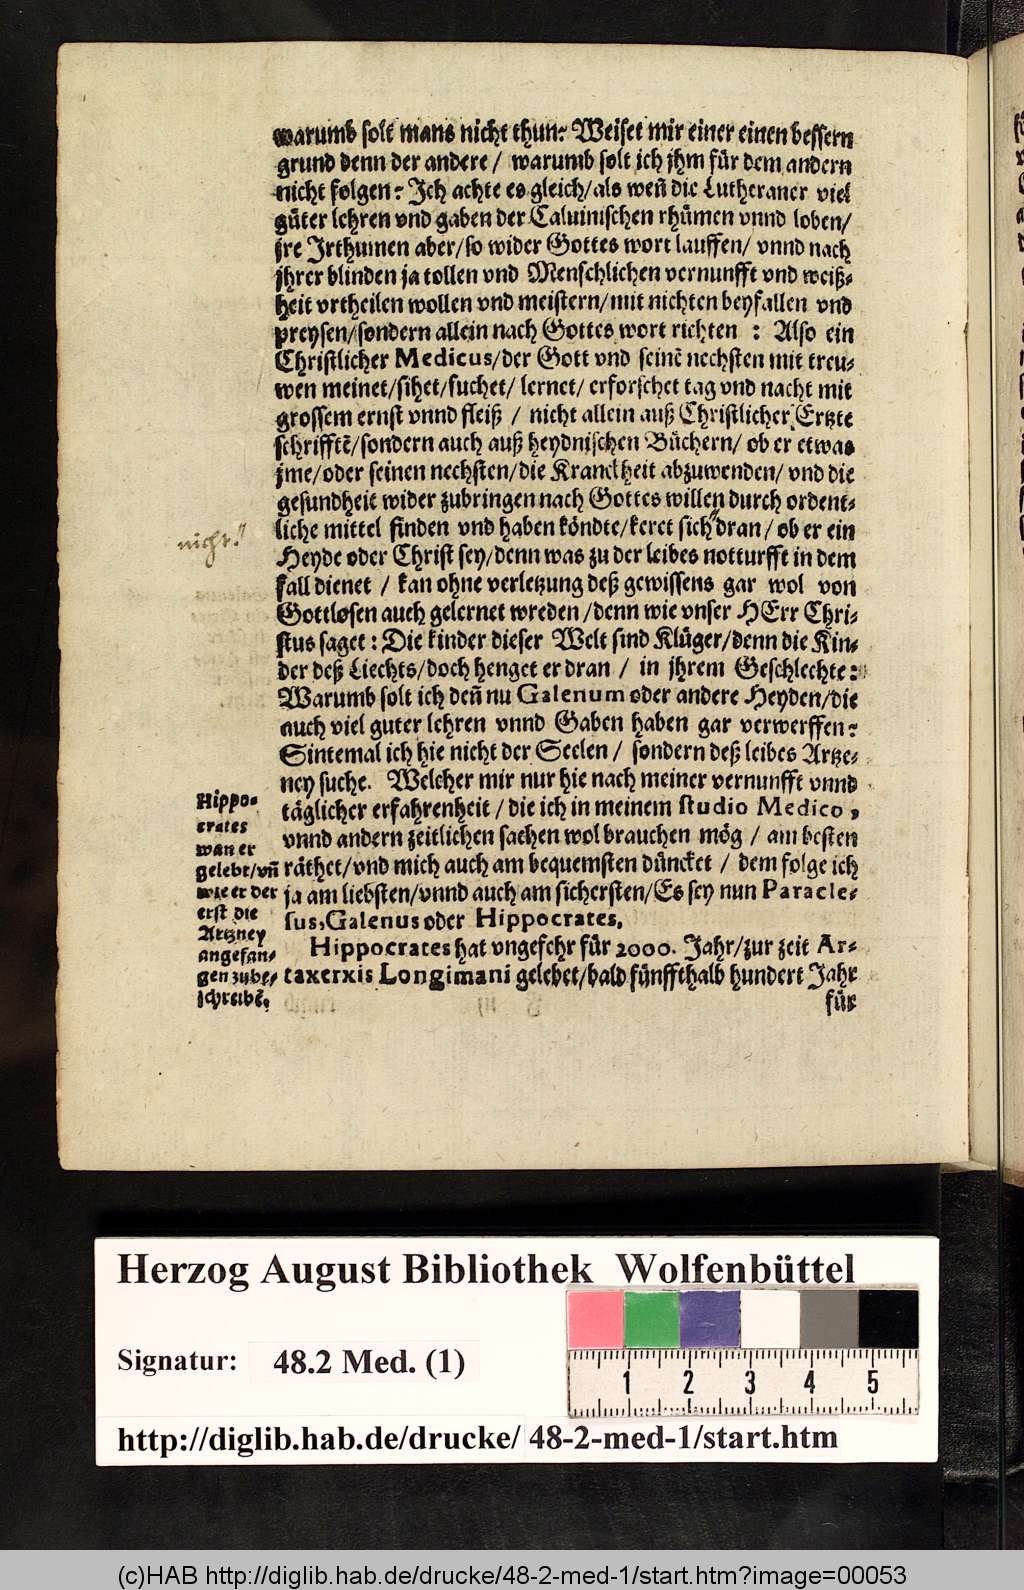 warumb solt mans nicht thun? Weiset mir einer einen bessern
grund denn der andere / warumb solt ich jhm für dem andern
nicht folgen? Ich achte es gleich/als weñ die Lutheraner viel
güter lehren vnd gaben der Caluinischen rhümen vnnd loben/
jre Jrthumen aber/so wider Gottes wort lauffen/ vnnd nach
jhrer blinden ja tollen vnd Menschlichen vernunfft vnd weiß-
heit vrtheilen wollen vnd meistern/mit nichten beyfallen vnd
preysen/sondern allein nach Gottes wort richten : Also ein
Christlicher Medicus/der Gott vnd seinē nechsten mit treu-
wen meinet/sihet/suchet/ lernet/ erforschet tag vnd nacht mit
grossem ernst vnnd fleiß / nicht allein auß Christlicher Ertzte
schrifftē/sondern auch auß heydnischen Büchern/ ob er etwas
jme/oder seinen nechsten/die Kranckheit abzuwenden/ vnd die
gesundheit wider zubringen nach Gottes willen durch ordent-
liche mittel finden vnd haben köndte/keret sich dran/ ob er ein
nicht
Heyde oder Christ sey/denn was zu der leibes notturfft in dem
fall dienet / kan ohne verletzung deß gewissens gar wol von
Gottlosen auch gelernet wreden/denn wie vnser HErr Chri-
stus saget : Die kinder dieser Welt sind Klüger/denn die Kin-
der deß Liechts/doch henget er dran / in jhrem Geschlechte:
Warumb solt ich deñ nu Galenum oder andere Heyden/die
auch viel guter lehren vnnd Gaben haben gar verwerffen?
Sintemal ich hie nicht der Seelen / sondern deß leibes Artze-
ney suche. Welcher mir nur hie nach meiner vernunfft vnnd
täglicher erfahrenheit / die ich in meinem studio Medico,
vnnd andern zeitlichen sachen wol brauchen mög / am besten
räthet/vnd mich auch am bequemsten düncket / dem folge ich
ja am liebsten/vnnd auch am sichersten/Es sey nun Paracle-
sus, Galenus oder Hippocrates.
Hippo-
crates
wan er
gelebt/vñ
wie er der
erst die
Artzney
angefan-
gen zube-
schreibē.
Hippocrates hat vngefehr für 2000. Jahr/zur zeit Ar-
taxerxis Longimani gelebet/bald fünffthalb hundert Jahr
für
Herzog August Bibliothek Wolfenbüttel
Signatur: 48.2 Med. (1)
1 2 3 4 5
http://diglib.hab.de/drucke/ 48-2-med-1/start.htm
(c)HAB http://diglib.hab.de/drucke/48-2-med-1/start.htm?image=00053